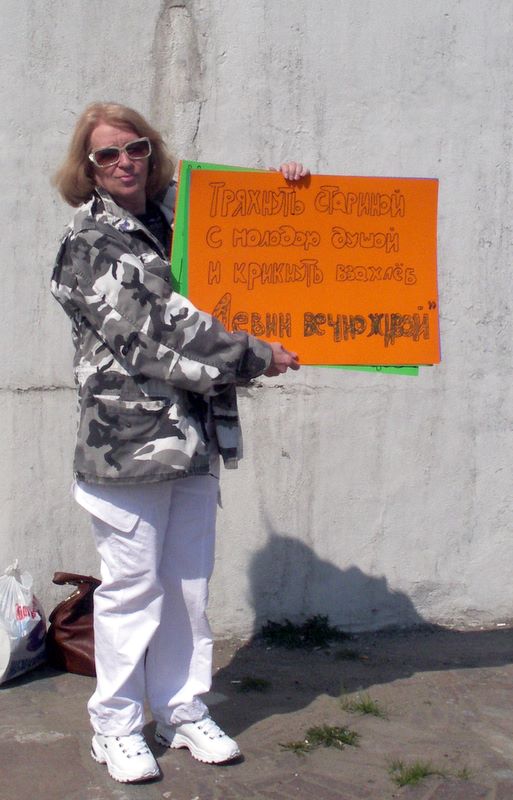 Тряхнуть стариной
с молодой душой
и крикнуть взахлёб
Левин вечно живой"